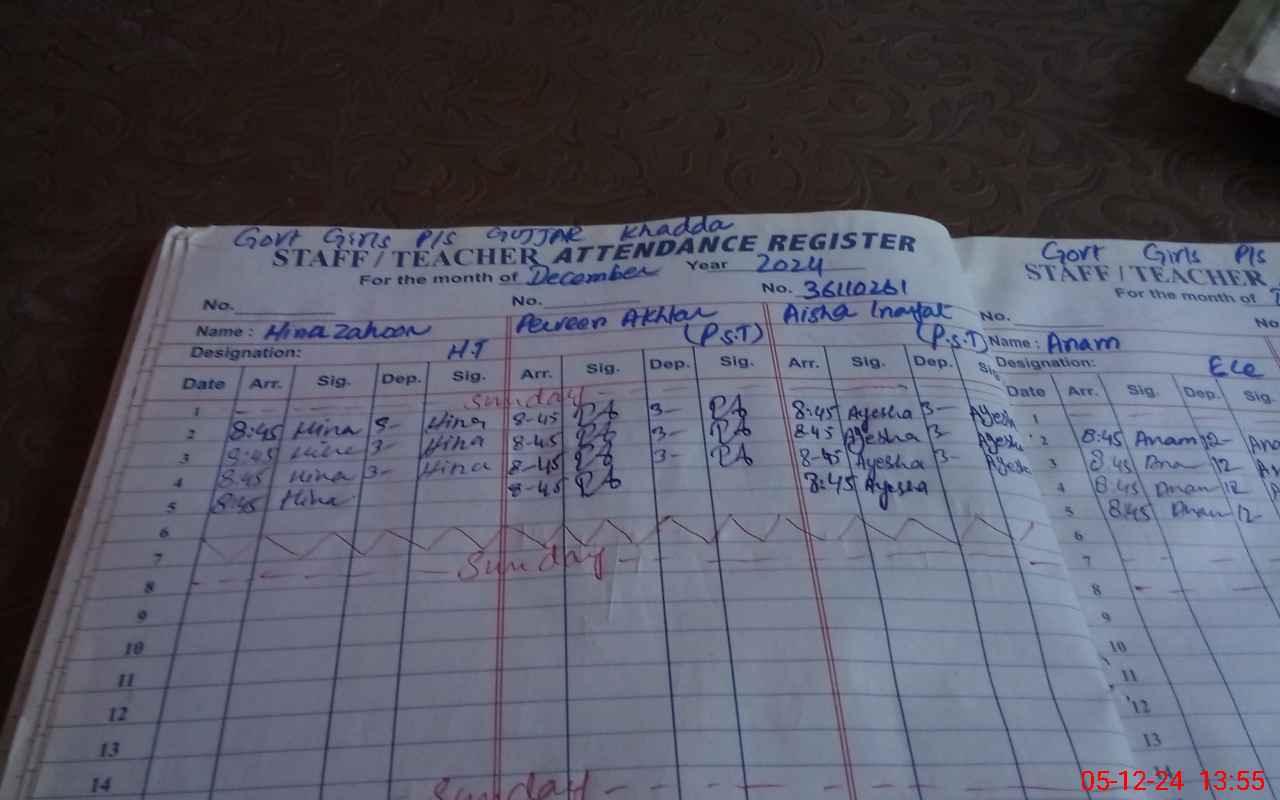 Govt Girls P/s GUJJAR Khadda
STAFF / TEACHER ATTENDANCE REGISTER
For the month of December Year 2024
No. No. No. 36110261
Name : Hina Zahoor Perveen Akhtar Aisha Inayat
Designation: H.T (P.S.T) (P.S.T)
Date Arr. Sig. Dep. Sig. Arr. Sig. Dep. Sig. Arr. Sig. Dep. Sig.
1 Sunday
2 8:45 Hina 3- Hina 8-45 PA 3- PA 8:45 Ayesha 3- Ayesh
3 8:45 Hina 3- Hina 8-45 PA 3- PA 8:45 Ayesha 3- Ayesh
4 8:45 Hina 3- Hina 8-45 PA 3- PA 8-45 Ayesha 3- Ayesh
5 8:45 Hina 8-45 PA 8:45 Ayesha
6
7
8 Sunday
9
10
11
12
13
14
Sunday
Govt Girls P/s
STAFF / TEACHER
For the month of
No. No
Name : Anam
Designation: Ece
Date Arr. Sig. Dep. Sig.
1
2 8:45 Anam 12-
3 8:45 Ana 12
4 8:45 Anam 12
5 8:45 Anam 12-
6
7
8
9
10
11
12
13
14
05-12-24 13:55